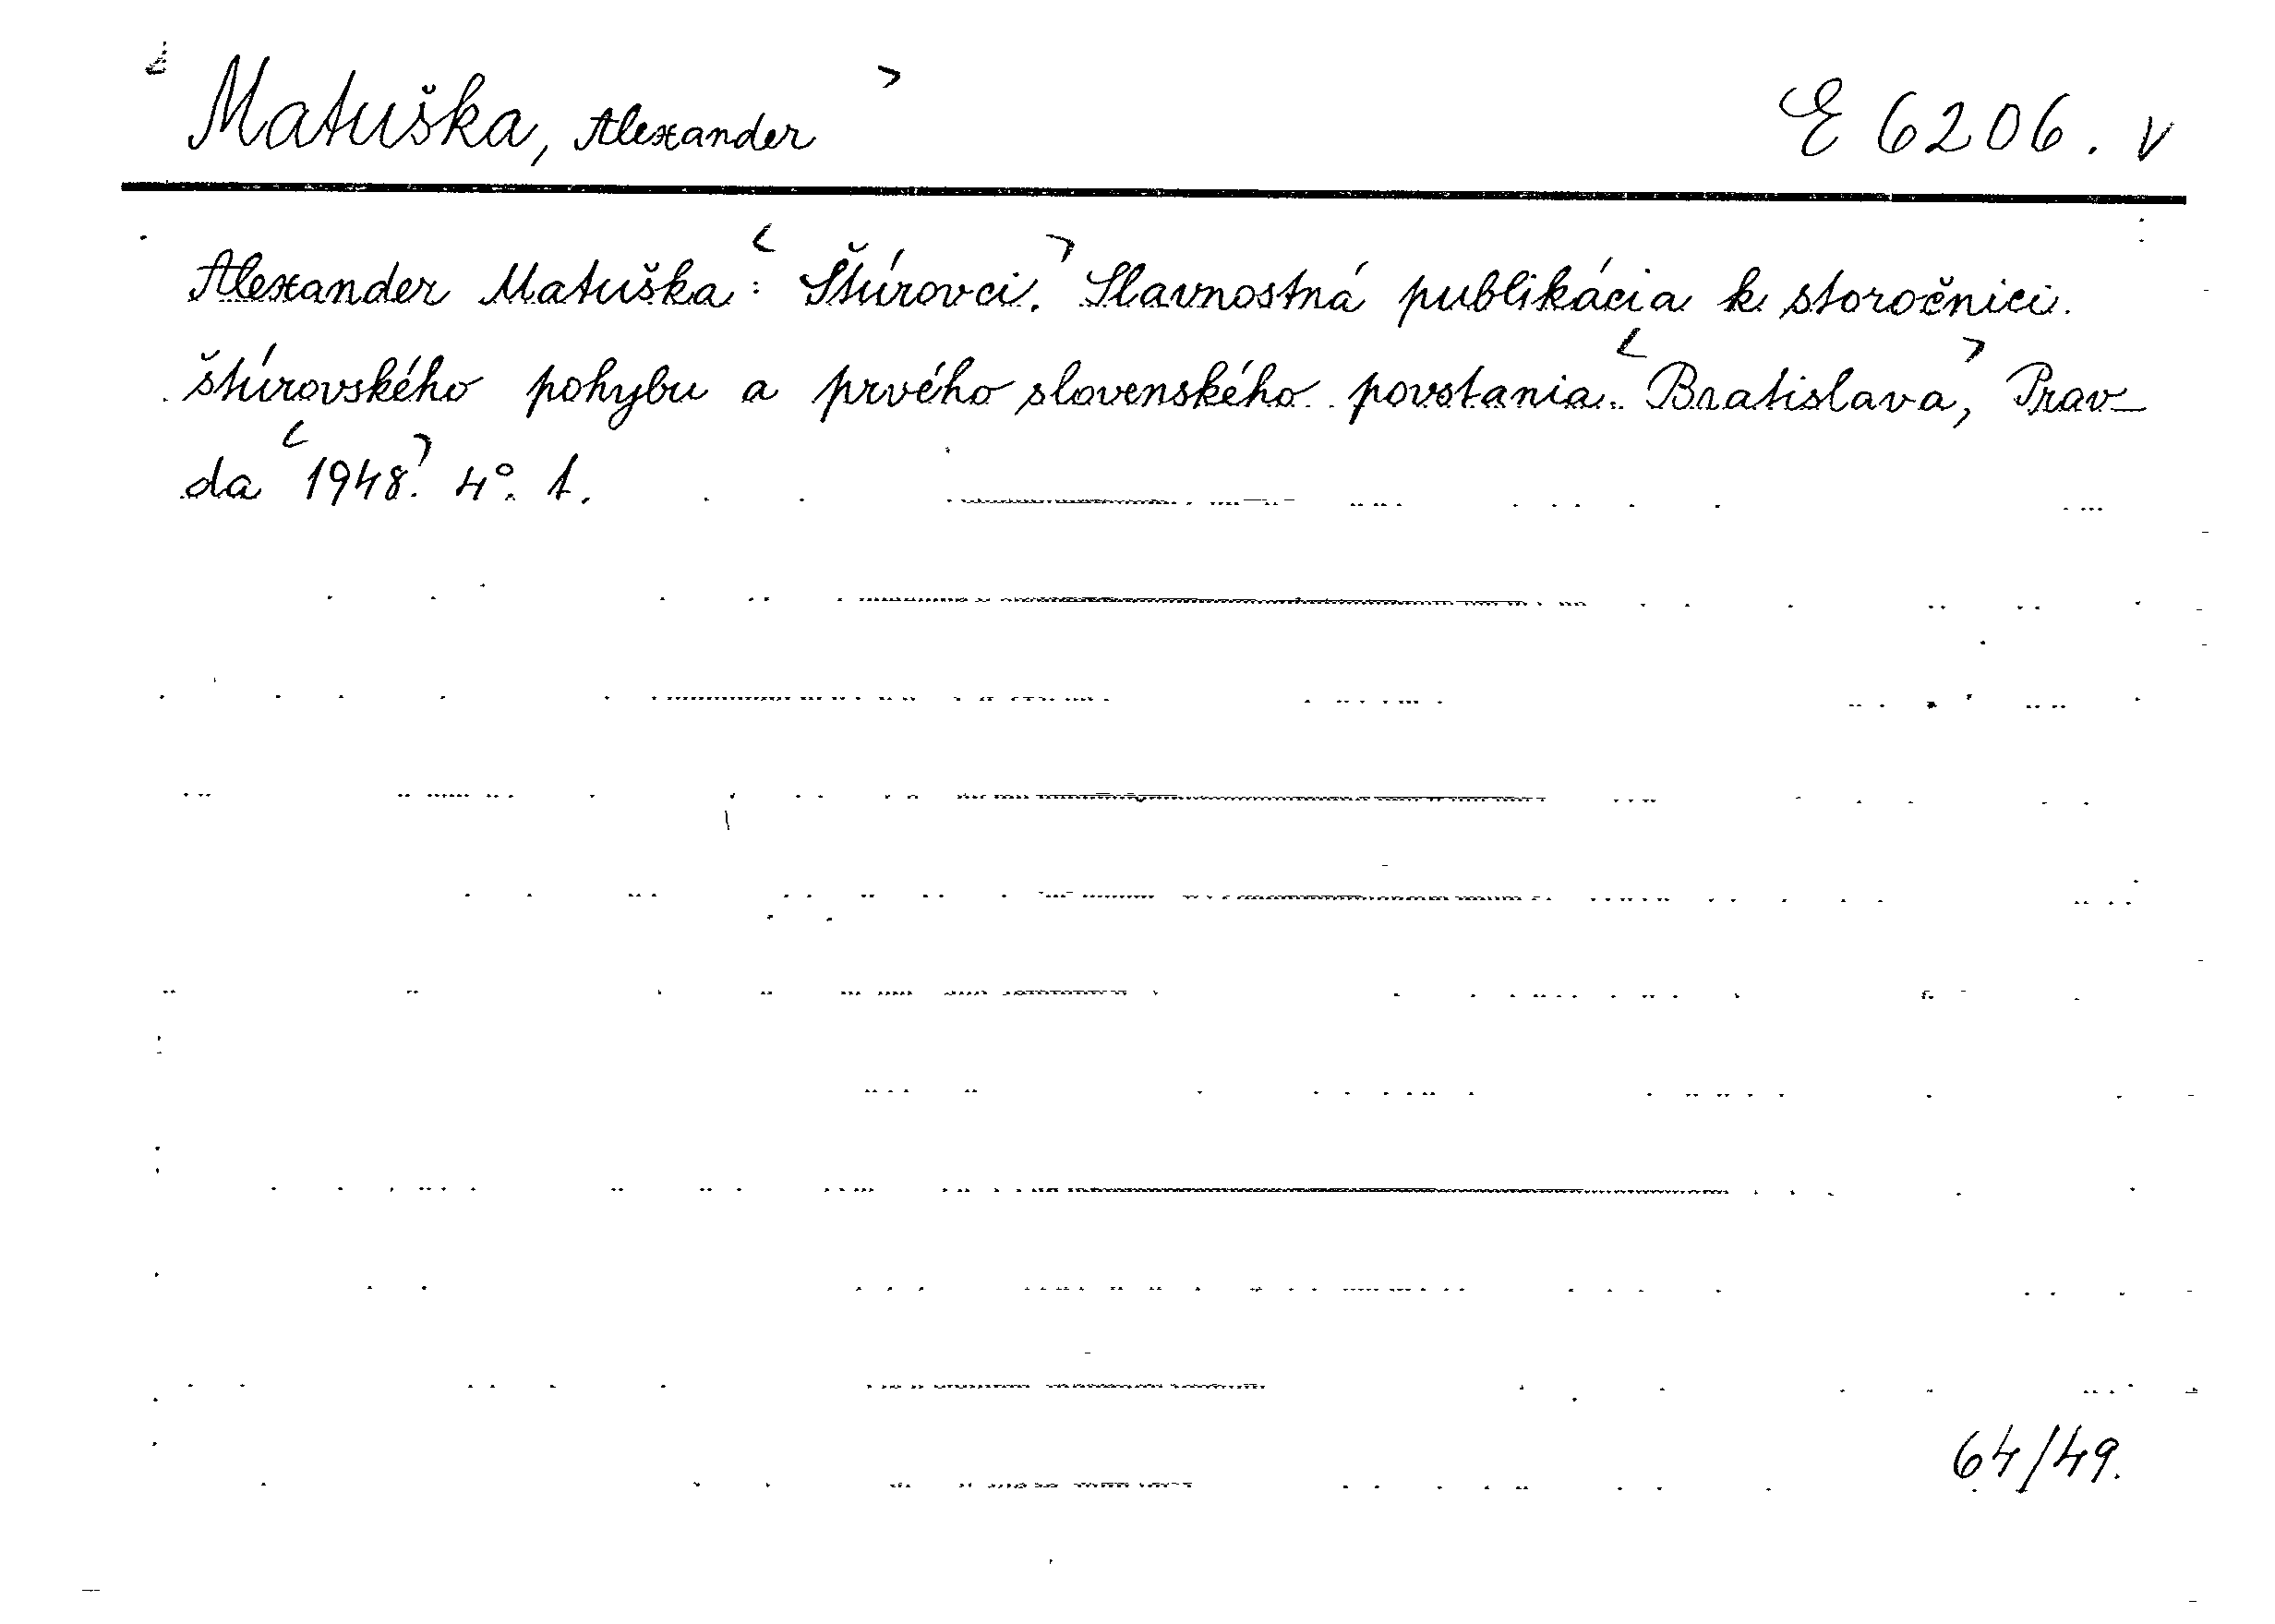 <Matuška, Alexander> E 6206. v
Alexander Matuška: <Štúrovci.> Slavnostná publikácia k storočnici
štúrovského pohybu a prvého slovenského povstania. <Bratislava,> Prav-
da <1948.> 4°. 1.
64/49.